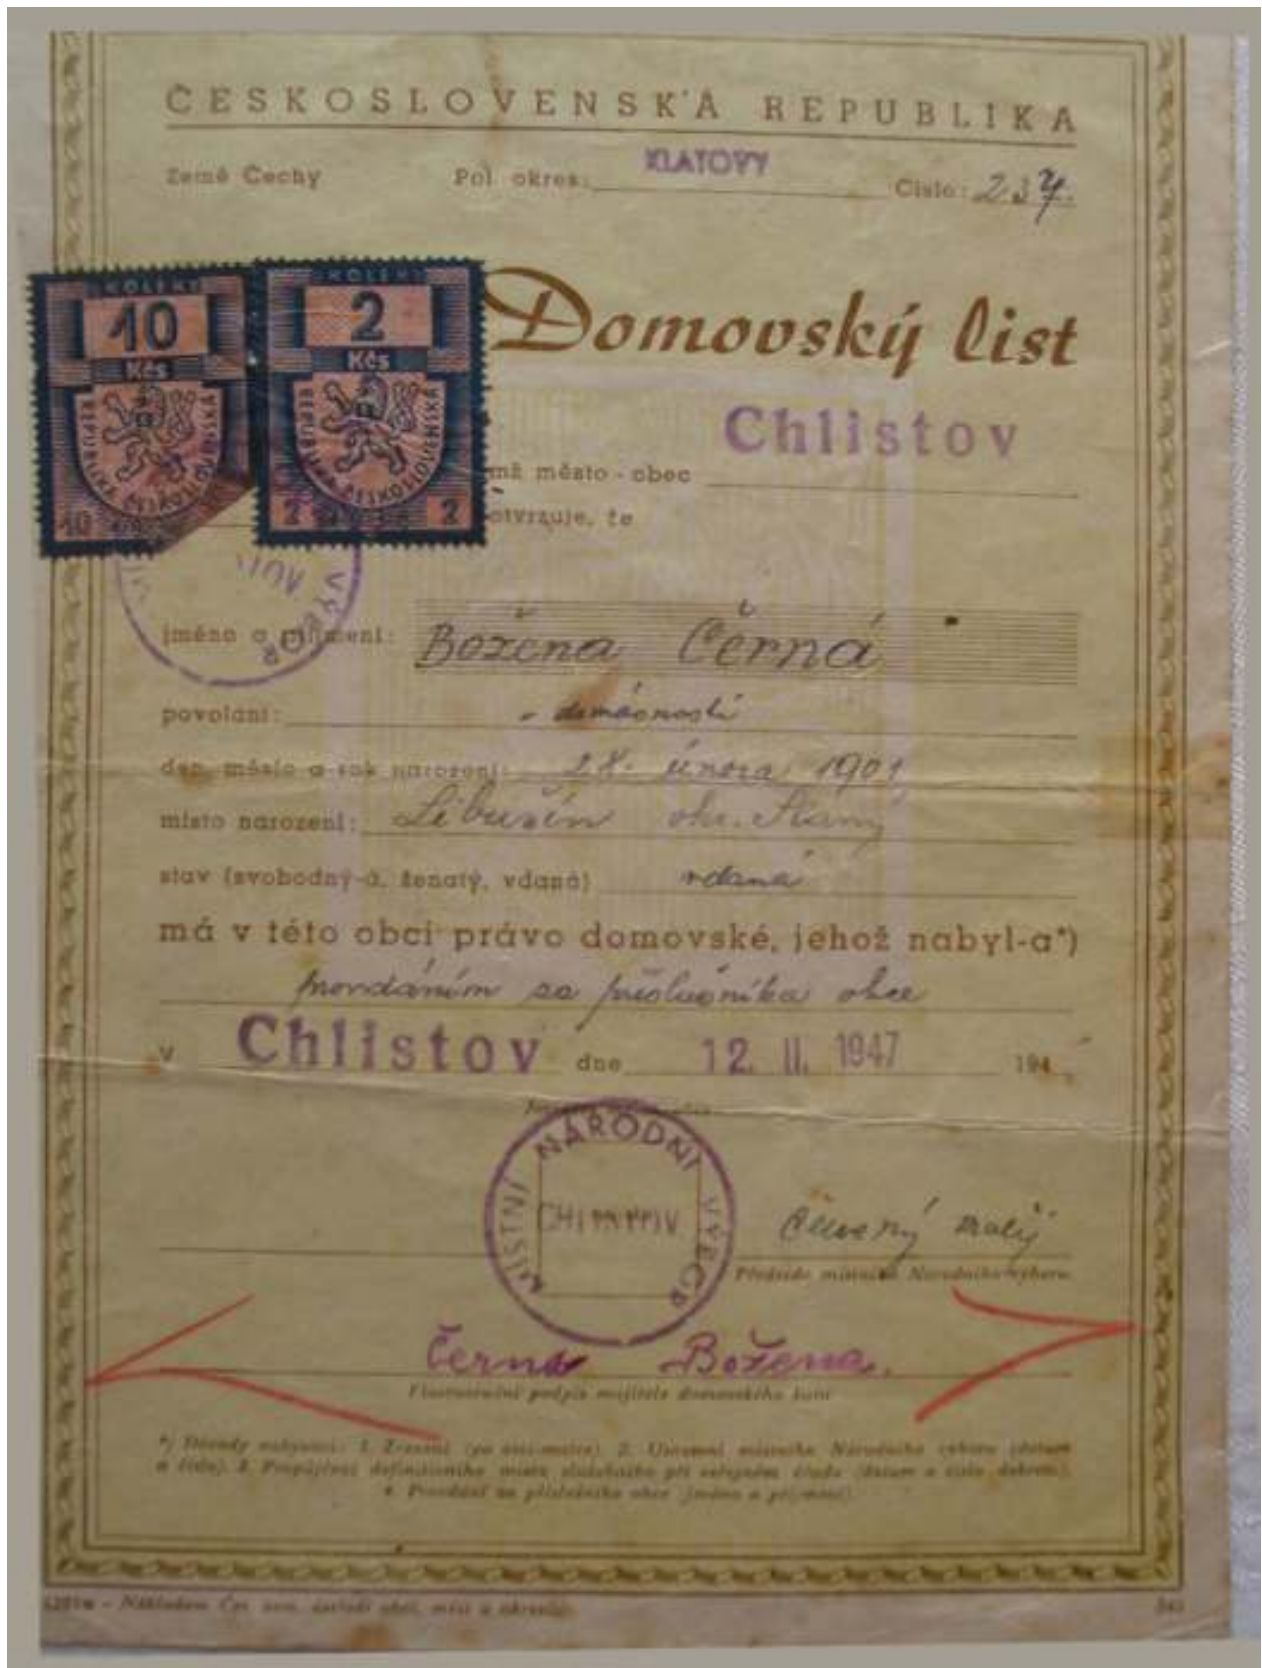 ČESKOSLOVENSKÁ REPUBLIKA
Země Čechy Pol. okres: KLATOVY Číslo: 237.
KOLEK KOLEK
10 2
Kčs Kčs
REPUBLIKA ČESKOSLOVENSKÁ REPUBLIKA ČESKOSLOVENSKÁ
10 2 2
Domovský list
Chlistov
město - obec
že
VÝBOR
jméno a příjmení: Božena Černá
povolání: domácnosti
den, měsíc a rok narození: 28. února 1901
místo narození: Libušín okr. Slaný
stav (svobodný-á, ženatý, vdaná) vdaná
má v této obci právo domovské, jehož nabyl-a*)
provdáním za příslušníka obce
v Chlistov dne 12. II. 1947 194
MÍSTNÍ NÁRODNÍ VÝBOR
Červený
Předseda místního Národního výboru
Černá Božena.
Vlastnoruční podpis majitele domovského listu
*) Důvody nabývací: 1. Zrození (po otci-matce). 2. Usnesení místního Národního výboru (datum
a číslo). 3. Propůjčení definitivního místa služebního při veřejném úřadu (datum a číslo dekretu).
4. Provdání za příslušníka obce (jméno a příjmení).